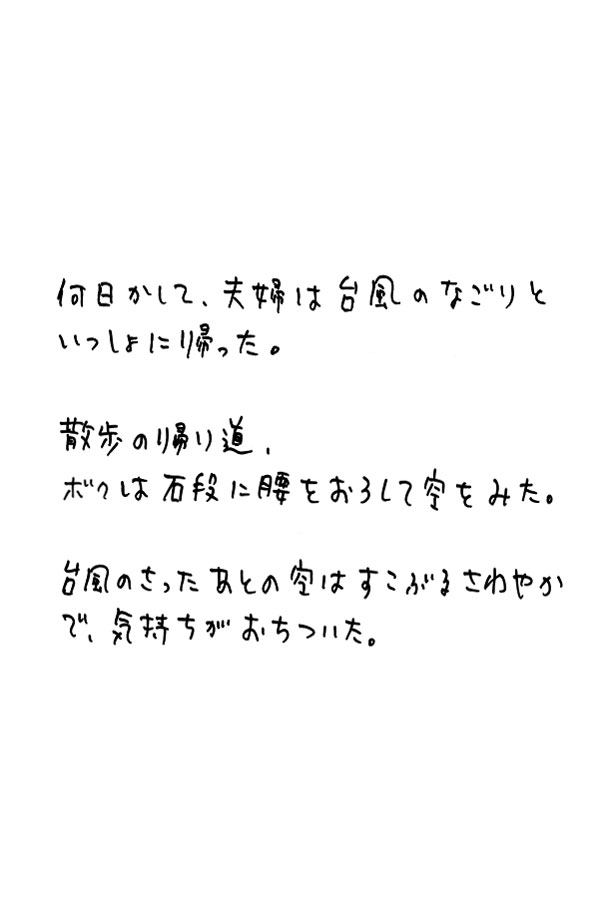 何日かして、夫婦は台風のなごりと
いっしょに帰った。
散歩の帰り道、
ボクは石段に腰をおろして空をみた。
台風のさったあとの空はすこぶるさわやか
で、気持ちがおちついた。